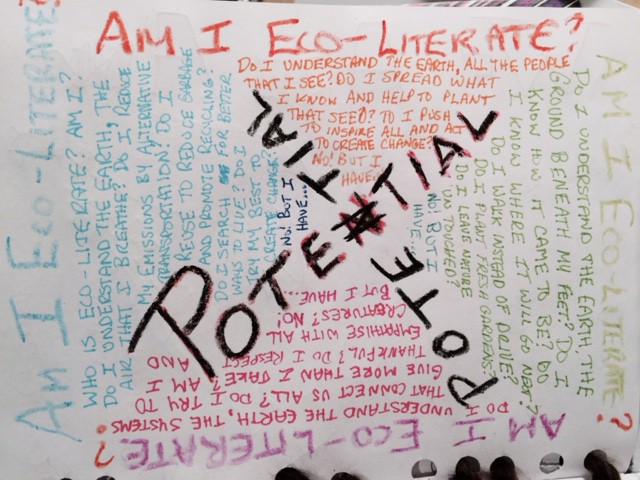 AM I ECO-LITERATE?
DO I UNDERSTAND THE EARTH, ALL THE PEOPLE
THAT I SEE? DO I SPREAD WHAT
I KNOW AND HELP TO PLANT
THAT SEED? TO I PUSH
TO INSPIRE ALL AND ACT
TO CREATE CHANGE?
NO! BUT I
HAVE...
AM I ECO-LITERATE?
DO I UNDERSTAND THE EARTH, THE
GROUND BENEATH MY FEET? DO I
KNOW HOW IT CAME TO BE? DO
I KNOW WHERE IT WILL GO NEXT?
DO I WALK INSTEAD OF DRIVE?
DO I PLANT FRESH GARDENS?
DO I LEAVE NATURE
UNTOUCHED?
NO! BUT I
HAVE...
AM I ECO-LITERATE?
DO I
UNDERSTAND THE EARTH, THE SYSTEMS
THAT CONNECT US ALL? DO I TRY TO
GIVE MORE THAN I TAKE? AM I
THANKFUL? DO I RESPECT AND
EMPATHISE WITH ALL
CREATURES? NO!
BUT I HAVE...
AM I ECO-LITERATE?
WHO IS ECO-LITERATE? AM I?
DO I UNDERSTAND THE EARTH, THE
AIR THAT I BREATHE? DO I REDUCE
MY EMISSIONS BY ALTERNATIVE
TRANSPORTATION? DO I
REUSE TO REDUCE GARBAGE
AND PROMOTE RECYCLING?
DO I SEARCH FOR BETTER
WAYS TO LIVE? DO I
TRY MY BEST TO
CREATE CHANGE?
NO! BUT I
HAVE...
POTENTIAL
POTE
TIAL